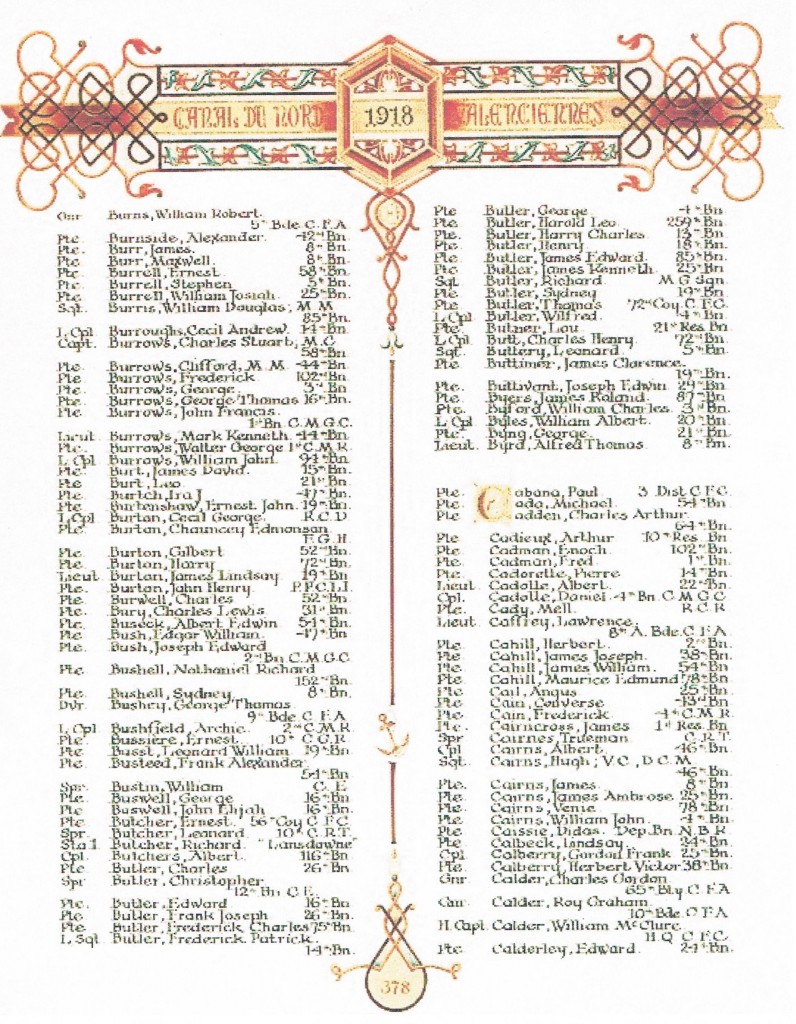 CANAL DU NORD 1918 VALENCIENNES
Gnr Burns, William Robert.
5th Bde. C.F.A.
Pte. Burnside, Alexander. 42nd Bn.
Pte. Burr, James. 8th Bn.
Pte. Burr, Maxwell. 8th Bn.
Pte. Burrell, Ernest. 58th Bn.
Pte. Burrell, Stephen 5th Bn.
Pte. Burrell, William Josiah. 25th Bn.
Sgt. Burris, William Douglas; M.M.
85th Bn.
L.Cpl. Burroughs, Cecil Andrew. 14th Bn.
Capt. Burrows, Charles Stuart; M.C.
58th Bn.
Pte. Burrows, Clifford, M.M. 44th Bn.
Pte. Burrows, Frederick 102nd Bn.
Pte. Burrows, George. 3rd Bn.
Pte. Burrows, George Thomas 16th Bn.
Pte. Burrows, John Francis.
1st Bn. C.M.G.C.
Lieut. Burrows, Mark Kenneth. 44th Bn.
Pte. Burrows, Walter George 1st C.M.R.
L.Cpl. Burrows, William John. 94th Bn.
Pte. Burt, James David. 15th Bn.
Pte. Burt, Leo. 21st Bn.
Pte. Burtch, Ira J. 47th Bn.
Pte. Burtenshaw, Ernest John. 19th Bn.
L.Cpl. Burton, Cecil George. R.C.D.
Pte. Burton, Chauncey Edmonson.
F.G.H.
Pte. Burton, Gilbert 52nd Bn.
Pte. Burton, Harry 72nd Bn.
Lieut. Burton, James Lindsay. 19th Bn.
Pte. Burton, John Henry. P.P.C.L.I.
Pte. Burwell, Charles 52nd Bn.
Pte. Bury, Charles Lewis 31st Bn.
Pte. Buseck, Albert Edwin 54th Bn.
Pte. Bush, Edgar William. 47th Bn.
Pte. Bush, Joseph Edward
2nd Bn. C.M.G.C.
Pte. Bushell, Nathaniel Richard
152nd Bn.
Pte. Bushell, Sydney. 8th Bn.
Dvr. Bushey, George Thomas
9th Bde. C.F.A.
L.Cpl. Bushfield, Archie. 2nd C.M.R.
Pte. Bussiere, Ernest. 10th C.G.R.
Pte. Busst, Leonard William 19th Bn.
Pte. Busteed, Frank Alexander.
54th Bn.
Spr. Bustin, William C.E.
Pte. Buswell, George 16th Bn.
Pte. Buswell, John Elijah 16th Bn.
Pte. Butcher, Ernest. 56th Coy C.F.C.
Spr. Butcher, Leonard. 10th C.R.T.
Sto.1. Butcher, Richard "Lansdowne"
Cpl. Butchers, Albert. 116th Bn.
Pte. Butler, Charles 26th Bn.
Spr. Butler, Christopher
12th Bn. C.E.
Pte. Butler, Edward 16th Bn.
Pte. Butler, Frank Joseph 26th Bn.
Pte. Butler, Frederick Charles 75th Bn.
L.Sgt. Butler, Frederick Patrick.
14th Bn.
Pte. Butler, George. 4th Bn.
Pte. Butler, Harold Leo. 259th Bn.
Pte. Butler, Harry Charles 13th Bn.
Pte. Butler, Henry 18th Bn.
Pte. Butler, James Edward. 85th Bn.
Pte. Butler, James Kenneth. 25th Bn.
Sgt. Butler, Richard M.G. Sqn.
Pte. Butler, Sydney 19th Bn.
Pte. Butler, Thomas 72nd Coy. C.F.C.
L.Cpl. Butler, Wilfred. 4th Bn.
Pte. Butner, Lou. 21st Res. Bn.
L.Cpl. Butt, Charles Henry. 72nd Bn.
Sgt. Buttery, Leonard. 5th Bn.
Pte. Buttimer, James Clarence.
19th Bn.
Pte. Buttivant, Joseph Edwin 29th Bn.
Pte. Byers, James Roland. 87th Bn.
Pte. Byford, William Charles. 3rd Bn.
L.Cpl. Byles, William Albert. 20th Bn.
Pte. Byng, George. 21st Bn.
Lieut. Byrd, Alfred Thomas. 8th Bn.
Pte. Cabana, Paul. 3 Dist. C.F.C.
Pte. Cada, Michael. 54th Bn.
Pte. Cadden, Charles Arthur.
64th Bn.
Pte. Cadieux, Arthur 10th Res. Bn.
Pte. Cadman, Enoch. 102nd Bn.
Pte. Cadman, Fred. 1st Bn.
Pte. Cadorette, Pierre 14th Bn.
Lieut. Cadotte, Albert. 22nd Bn.
Cpl. Cadotte, Daniel. 4th Bn. C.M.G.C.
Pte. Cady, Mell. R.C.R.
Lieut. Caffrey, Lawrence.
8th A. Bde. C.F.A.
Pte. Cahill, Herbert. 2nd Bn.
Pte. Cahill, James Joseph. 38th Bn.
Pte. Cahill, James William. 54th Bn.
Pte. Cahill, Maurice Edmund 78th Bn.
Pte. Cail, Angus 25th Bn.
Pte. Cain, Converse 43rd Bn.
Pte. Cain, Frederick 4th C.M.R.
Pte. Cairncross, James 1st Res. Bn.
Spr. Cairnes, Trueman C.R.T.
Cpl. Cairns, Albert. 46th Bn.
Sgt. Cairns, Hugh; V.C., D.C.M.
46th Bn.
Pte. Cairns, James. 8th Bn.
Pte. Cairns, James Ambrose. 25th Bn.
Pte. Cairns, Venie 78th Bn.
Pte. Cairns, William John. 4th Bn.
Pte. Caissie, Didas. Dep. Bn. N.B.R.
Pte. Calbeck, Lindsay. 24th Bn.
Cpl. Calberry, Gordon Frank 25th Bn.
Pte. Calberry, Herbert Victor 38th Bn.
Gnr. Calder, Charles Gordon.
65th Bty C.F.A.
Gnr. Calder, Roy Graham.
10th Bde. C.F.A.
H.Capt. Calder, William McClure.
H.Q. C.F.C.
Pte. Calderley, Edward. 24th Bn.
378